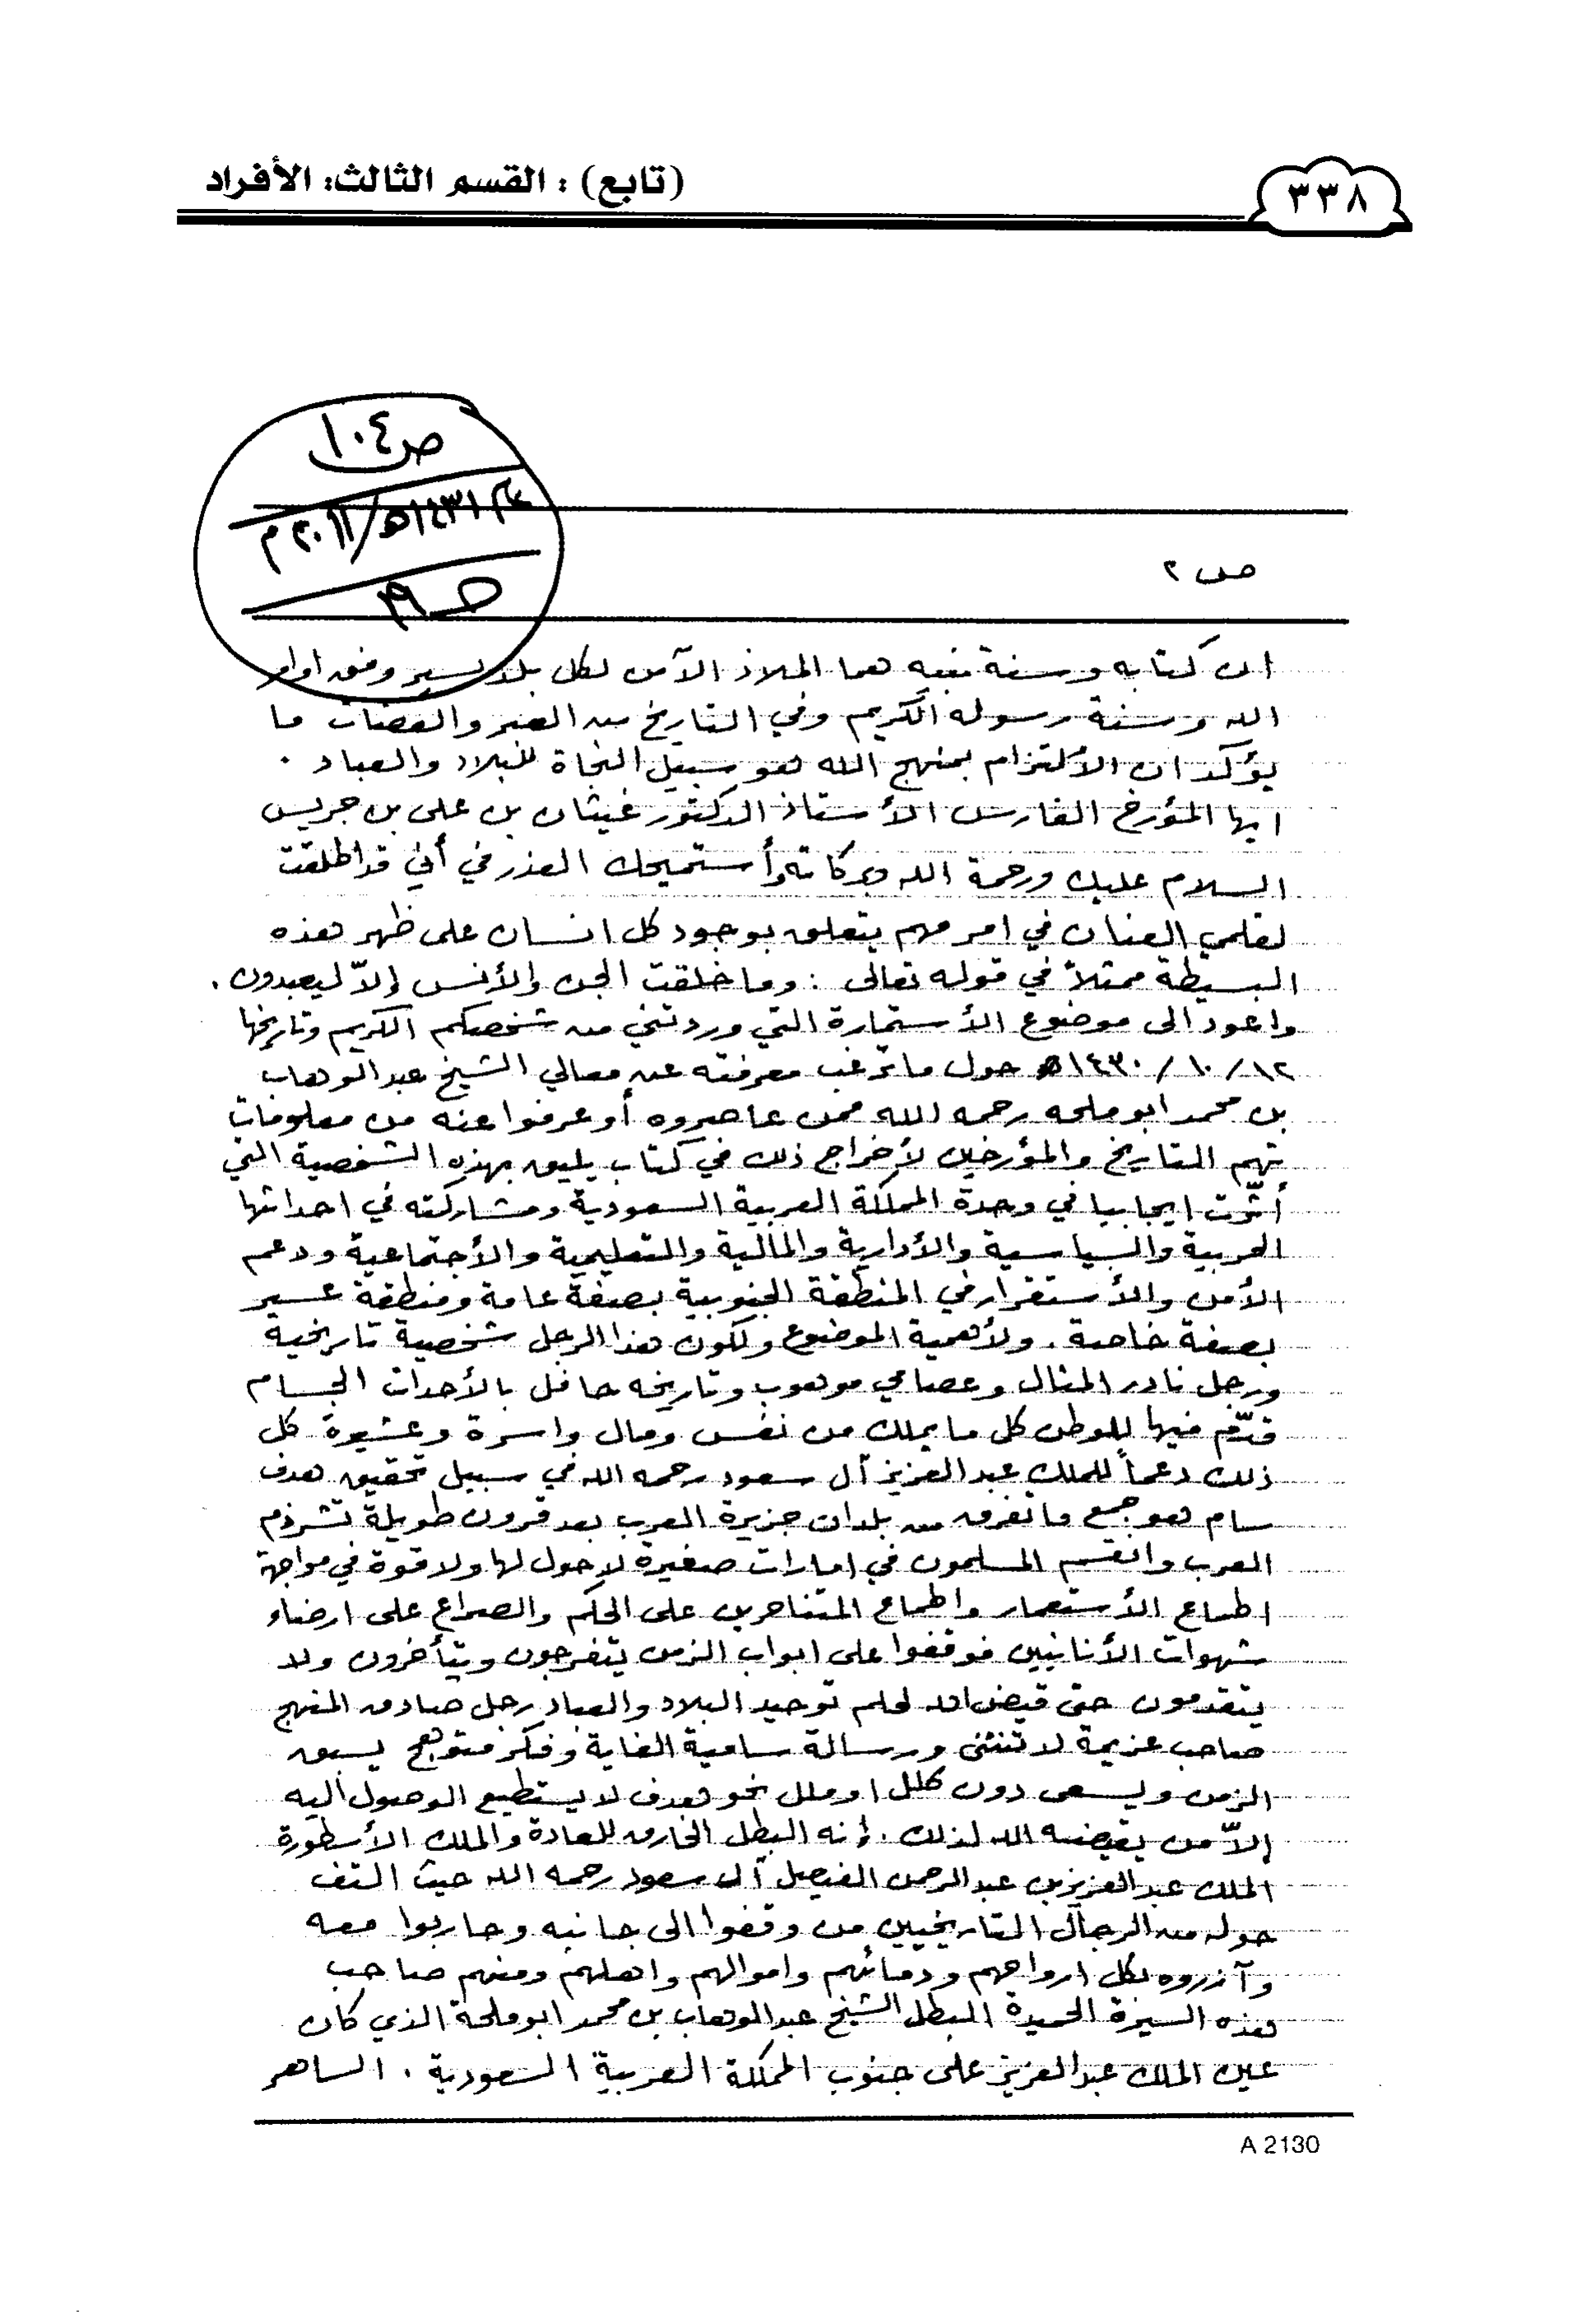 ٣٣٨
(تابع) : القسم الثالث: الأفراد
ص ١٠٤
١٤٣١هـ/٢٠١١م
ص ٢
ان كتابه وسنة نبيه هما الملاذ الآمن لكل بلد يسير وفق اوامر
الله وسنة رسوله الكريم وفي التاريخ من العبر والعضات ما
يؤكد ان الألتزام بمنهج الله هو سبيل النجاة للبلاد والعباد .
ايها المؤرخ الفارس الأستاذ الدكتور غيثان بن علي بن جريس
السلام عليك ورحمة الله وبركاته وأستميحك العذر في أني قد اطلقت
لقلمي العنان في امر مهم يتعلق بوجود كل انسان على ظهر هذه
البسيطة ممثلاً في قوله تعالى : وما خلقت الجن والأنس إلاّ ليعبدون .
واعود الى موضوع الأستمارة التي وردتني من شخصكم الكريم وتاريخها
١٢/ ١٠/ ١٤٣٠هـ حول ما ترغب معرفته عن معالي الشيخ عبدالوهاب
بن محمد ابو ملحه رحمه الله ممن عاصروه أو عرفوا عنه من معلومات
تهم التاريخ والمؤرخين لأخراج ذلك في كتاب يليق بهذه الشخصية التي
أثّرت ايجابيا في وحدة المملكة العربية السعودية ومشاركته في احداثها
الحربية والسياسية والأدارية والمالية والتعليمية والأجتماعية ودعم
الأمن والأستقرار في المنطقة الجنوبية بصفة عامة ومنطقة عسير
بصفة خاصة . ولأهمية الموضوع ولكون هذا الرجل شخصية تاريخية
ورجل نادر المثال وعصامي موهوب وتاريخه حافل بالأحداث الجسام
قدّم فيها للوطن كل ما يملك من نفس ومال واسرة وعشيرة كل
ذلك دعماً للملك عبدالعزيز آل سعود رحمه الله في سبيل تحقيق هدف
سام هو جمع ما تفرق من بلدان جزيرة العرب بعد قرون طويلة تشرذم
العرب وانقسم المسلمون في امارات صغيرة لا حول لها ولا قوة في مواجهة
اطماع الأستعمار واطماع المتناحرين على الحكم والصراع على ارضاء
شهوات الأنانيين فوقفوا على ابواب الزمن يتفرجون ويتأخرون ولا
يتقدمون حتى قيض الله لحلم توحيد البلاد والعباد رجل صادق المنهج
صاحب عزيمة لا تنثني ورسالة سامية الغاية وفكر متوهج يسبق
الزمن ويسعى دون كلل او ملل نحو هدف لا يستطيع الوصول أليه
إلاّ من يقيضه الله لذلك . إنه البطل الخارق للعادة والملك الأسطورة
الملك عبدالعزيز بن عبدالرحمن الفيصل آل سعود رحمه الله حيث التف
حوله من الرجال التاريخيين من وقفوا الى جانبه وحاربوا معه
وآزروه بكل ارواحهم ودمائهم واموالهم واهلهم ومنهم صاحب
هذه السيرة الحميدة البطل الشيخ عبدالوهاب بن محمد ابو ملحة الذي كان
عين الملك عبدالعزيز على جنوب المملكة العربية السعودية . الساهر
A 2130